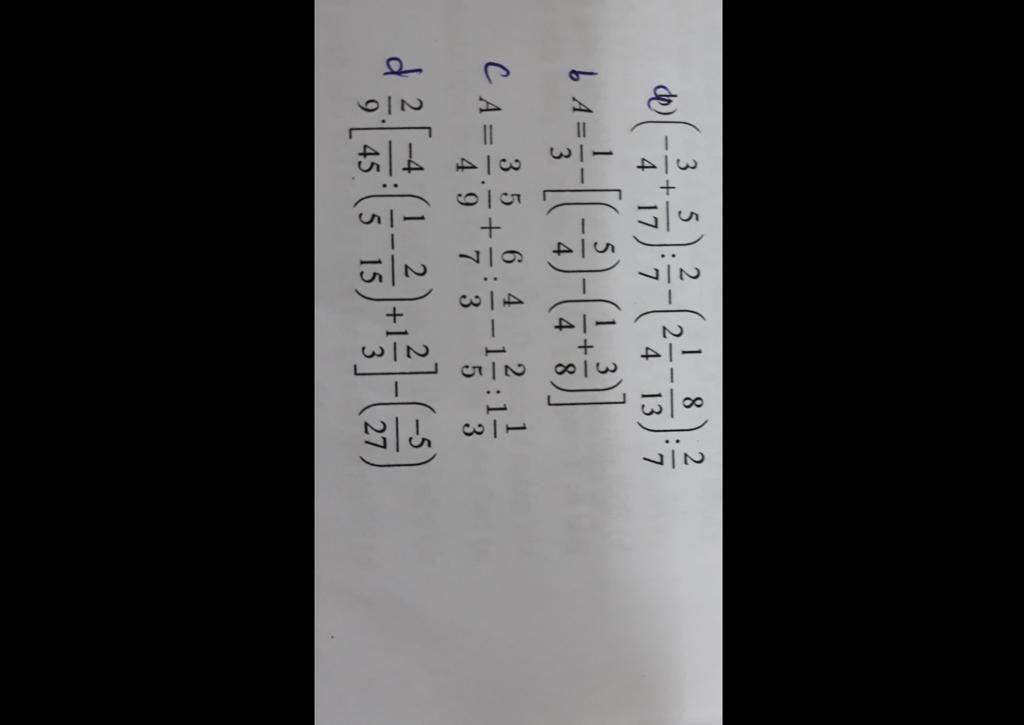 a) (-3/4 + 5/17) : 2/7 - (2 1/4 - 8/13) : 2/7
b A = 1/3 - [(-5/4) - (1/4 + 3/8)]
c A = 3/4 . 5/9 + 6/7 : 4/3 - 1 2/5 : 1 1/3
d 2/9 . [-4/45 : (1/5 - 2/15) + 1 2/3] - (-5/27)